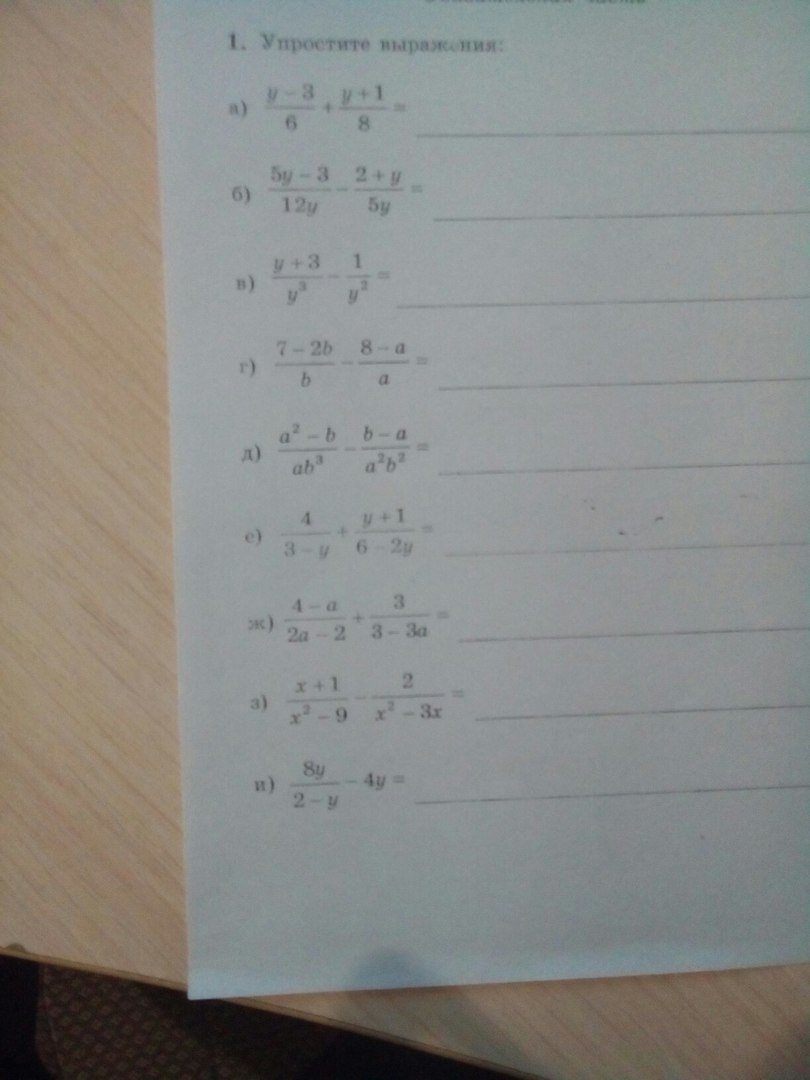 1. Упростите выражения:
а) (y – 3)/6 + (y + 1)/8 =
б) (5y – 3)/(12y) – (2 + y)/(5y) =
в) (y + 3)/y³ – 1/y² =
г) (7 – 2b)/b – (8 – a)/a =
д) (a² – b)/(ab³) – (b – a)/(a²b²) =
е) 4/(3 – y) + (y + 1)/(6 – 2y) =
ж) (4 – a)/(2a – 2) + 3/(3 – 3a) =
з) (x + 1)/(x² – 9) – 2/(x² – 3x) =
и) 8y/(2 – y) – 4y =